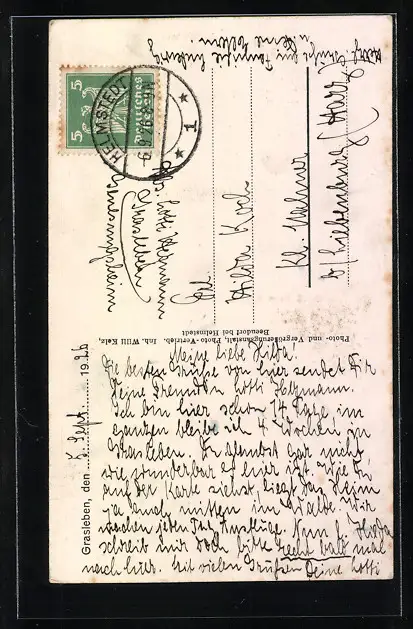 Grasleben, den 5. Sept. 1926
Meine liebe Hilda!
Die besten Grüsse von hier sendet Dir
Deine Freundin Lotti Heymann.
Ich bin hier schon 14 Tage, im
ganzen bleibe ich 4 Wochen in
Grasleben. Du glaubst gar nicht
wie wunderbar es hier ist. Wie Du
auf der Karte siehst liegt das Heim
ja auch mitten im Walde. Wir
machen jeden Tag Ausflüge. Nun l. Hilda
schreib mir doch bitte recht bald mal
nach hier. Mit vielen Grüßen Deine Lotti
Photo- und Vergrößerungsanstalt, Photo-Vertrieb. Inh. Willi Kelz,
Beendorf bei Helmstedt
Abs. Lotti Heymann
Grasleben
Genesungsheim
5 5
Deutsches Reich
HELMSTEDT
6.9.26
* 1 *
An
Hilda Koch
Kl.
b/ (Harz)
Herzl. Grüße an Familie Ludwig
u. Deine Eltern.